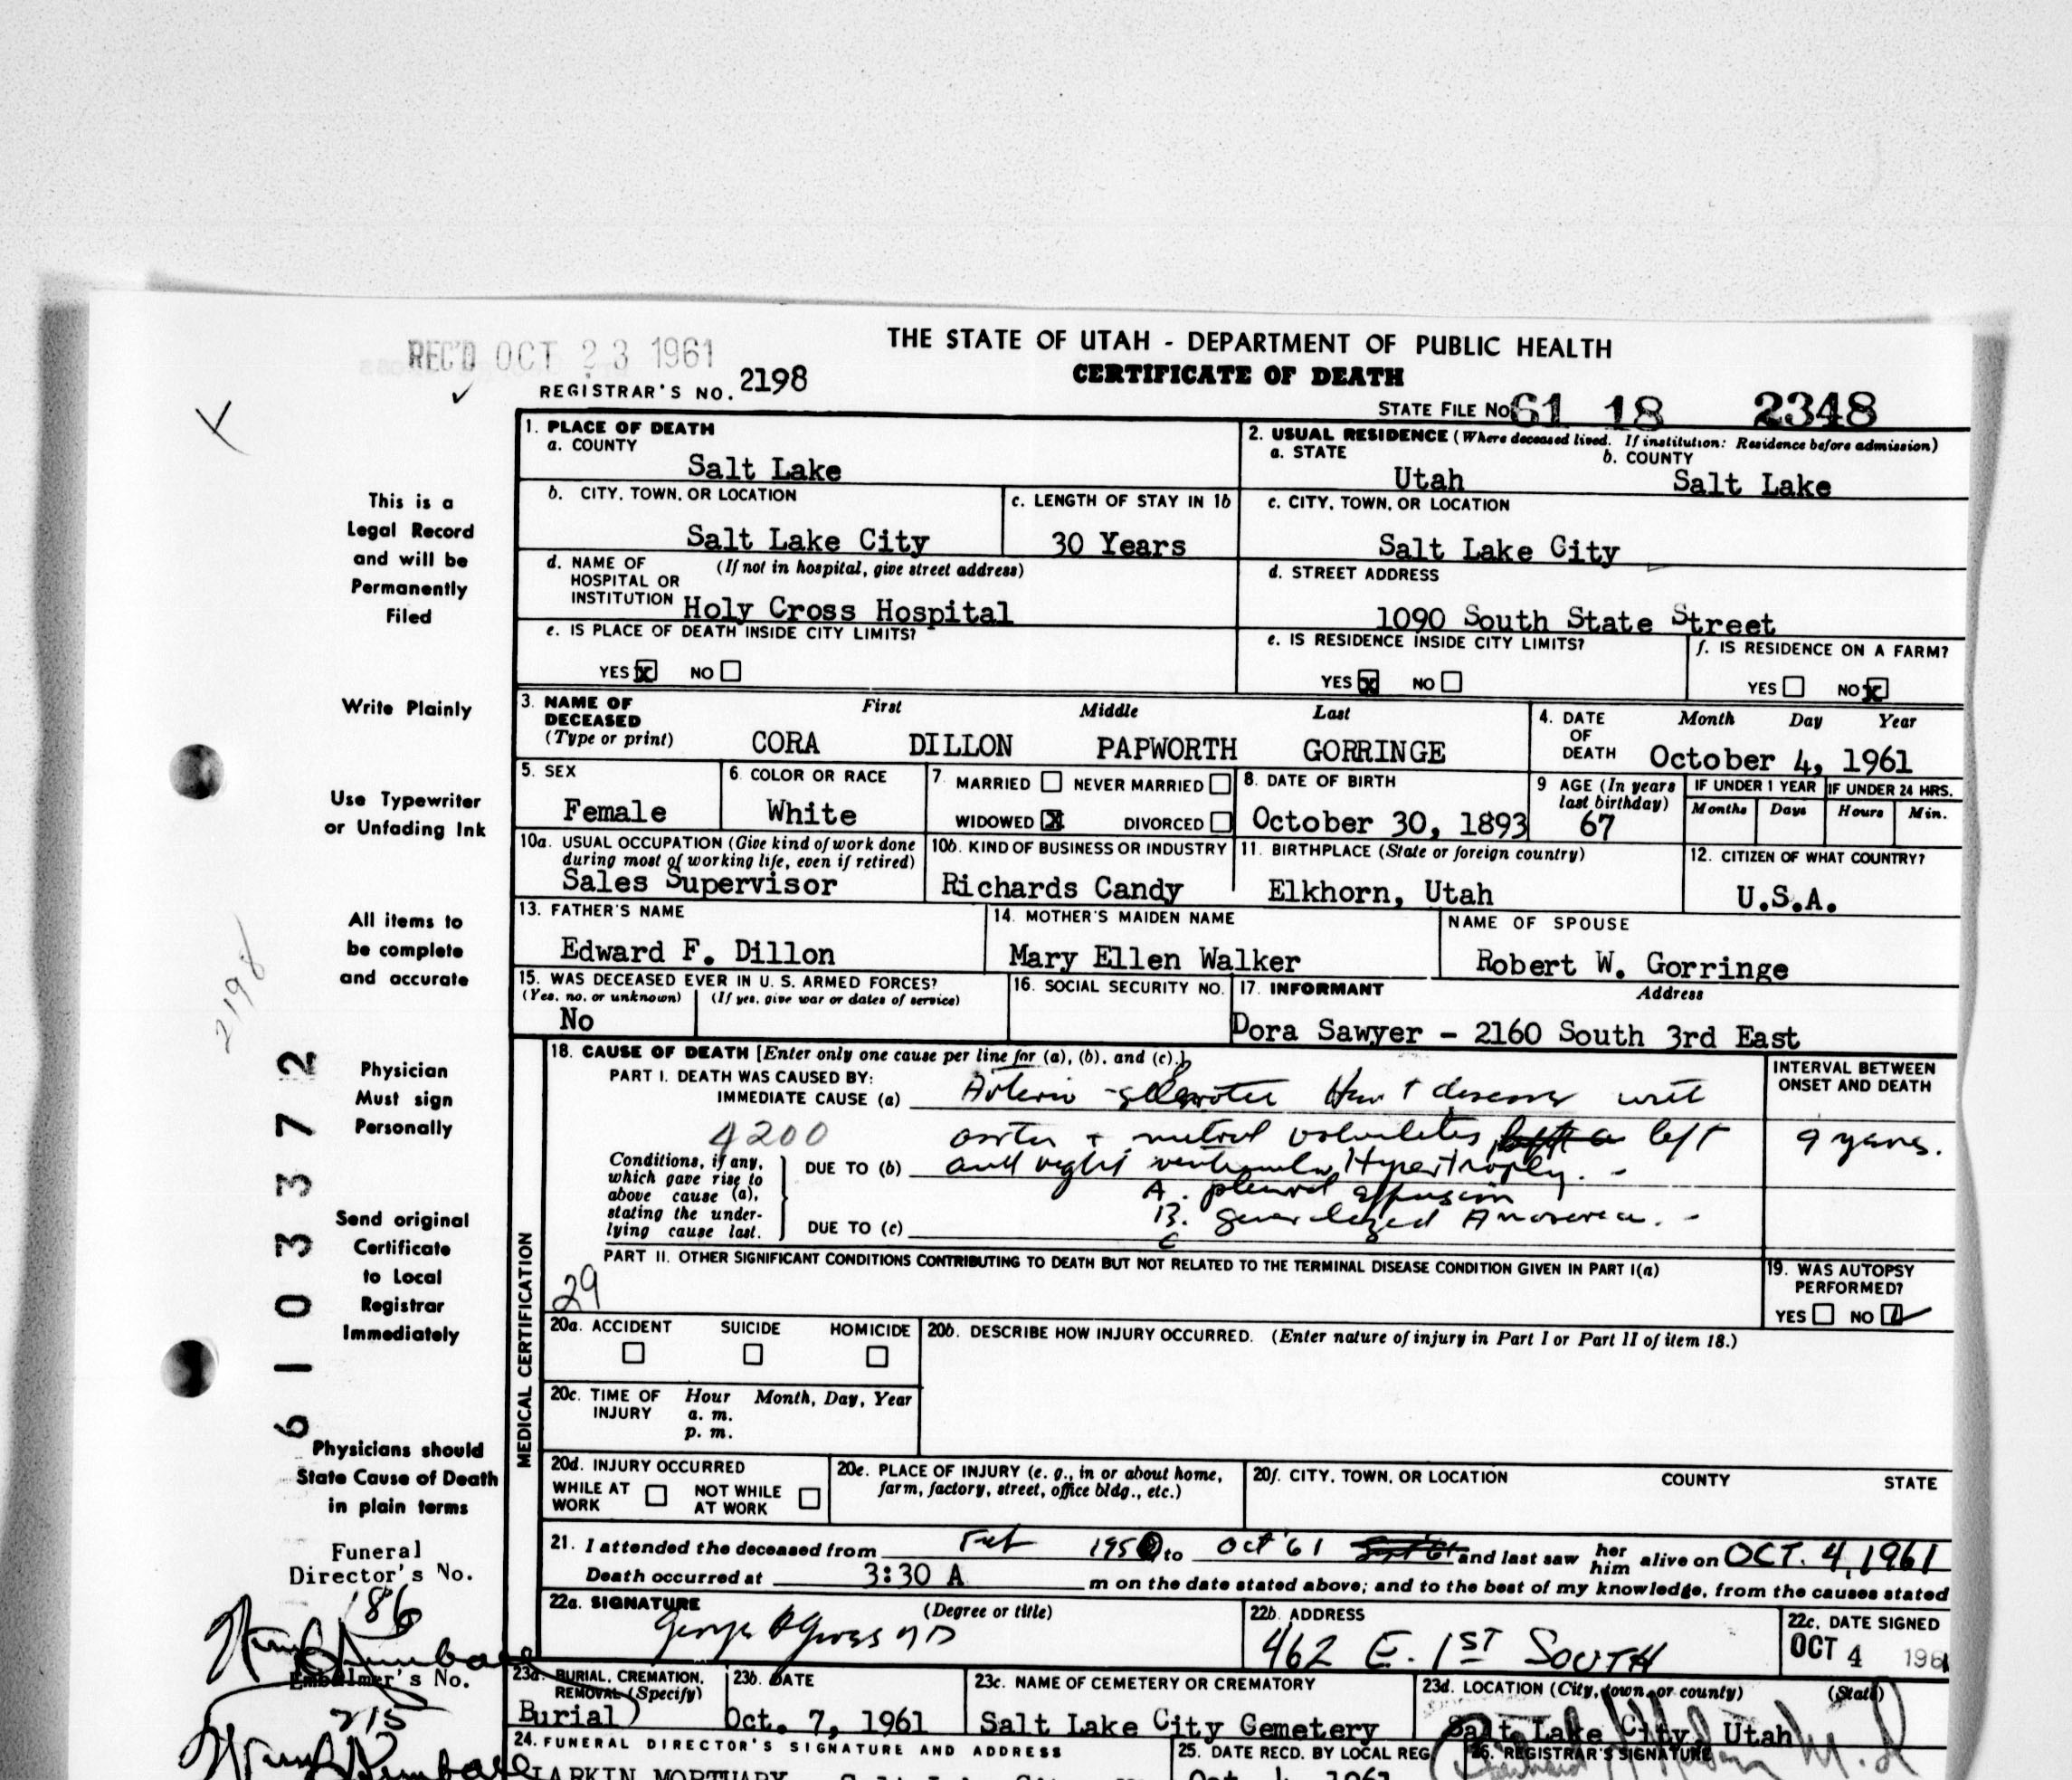 THE STATE OF UTAH - DEPARTMENT OF PUBLIC HEALTH
REC'D OCT 23 1961
CERTIFICATE OF DEATH
REGISTRAR'S NO. 2198
STATE FILE NO. 61 18 2348
1. PLACE OF DEATH
a. COUNTY
Salt Lake
2. USUAL RESIDENCE (Where deceased lived. If institution: Residence before admission)
a. STATE b. COUNTY
Utah Salt Lake
b. CITY, TOWN, OR LOCATION
Salt Lake City
c. LENGTH OF STAY IN 1b
30 Years
c. CITY, TOWN, OR LOCATION
Salt Lake City
d. NAME OF HOSPITAL OR INSTITUTION (If not in hospital, give street address)
Holy Cross Hospital
d. STREET ADDRESS
1090 South State Street
e. IS PLACE OF DEATH INSIDE CITY LIMITS?
YES x NO
e. IS RESIDENCE INSIDE CITY LIMITS?
YES x NO
f. IS RESIDENCE ON A FARM?
YES NO x
3. NAME OF DECEASED (Type or print)
First Middle Last
CORA DILLON PAPWORTH GORRINGE
4. DATE OF DEATH Month Day Year
October 4, 1961
5. SEX
Female
6. COLOR OR RACE
White
7. MARRIED NEVER MARRIED
WIDOWED x DIVORCED
8. DATE OF BIRTH
October 30, 1893
9 AGE (In years last birthday)
67
IF UNDER 1 YEAR IF UNDER 24 HRS.
Months Days Hours Min.
10a. USUAL OCCUPATION (Give kind of work done during most of working life, even if retired)
Sales Supervisor
10b. KIND OF BUSINESS OR INDUSTRY
Richards Candy
11. BIRTHPLACE (State or foreign country)
Elkhorn, Utah
12. CITIZEN OF WHAT COUNTRY?
U.S.A.
13. FATHER'S NAME
Edward F. Dillon
14. MOTHER'S MAIDEN NAME
Mary Ellen Walker
NAME OF SPOUSE
Robert W. Gorringe
15. WAS DECEASED EVER IN U. S. ARMED FORCES?
(Yes, no, or unknown) (If yes, give war or dates of service)
No
16. SOCIAL SECURITY NO.
17. INFORMANT Address
Dora Sawyer - 2160 South 3rd East
18. CAUSE OF DEATH [Enter only one cause per line for (a), (b), and (c).]
PART I. DEATH WAS CAUSED BY:
IMMEDIATE CAUSE (a)
Heart disease
4200
+ mitral left
Conditions, if any, which gave rise to above cause (a), stating the underlying cause last.
DUE TO (b)
and right ventricular Hypertrophy.
A. pleural effusion
B. generalized Anasarca.
DUE TO (c)
C
INTERVAL BETWEEN ONSET AND DEATH
9 years.
PART II. OTHER SIGNIFICANT CONDITIONS CONTRIBUTING TO DEATH BUT NOT RELATED TO THE TERMINAL DISEASE CONDITION GIVEN IN PART I(a)
29
19. WAS AUTOPSY PERFORMED?
YES NO
20a. ACCIDENT SUICIDE HOMICIDE
20b. DESCRIBE HOW INJURY OCCURRED. (Enter nature of injury in Part I or Part II of item 18.)
20c. TIME OF INJURY Hour Month, Day, Year
a. m.
p. m.
20d. INJURY OCCURRED
WHILE AT WORK NOT WHILE AT WORK
20e. PLACE OF INJURY (e. g., in or about home, farm, factory, street, office bldg., etc.)
20f. CITY, TOWN, OR LOCATION COUNTY STATE
21. I attended the deceased from Feb 195 to Oct '61 and last saw her him alive on OCT. 4, 1961
Death occurred at 3:30 A m on the date stated above; and to the best of my knowledge, from the causes stated
22a. SIGNATURE (Degree or title)
George
22b. ADDRESS
462 E. 1ST SOUTH
22c. DATE SIGNED
OCT 4 1961
23a. BURIAL, CREMATION, REMOVAL (Specify)
Burial
23b. DATE
Oct. 7, 1961
23c. NAME OF CEMETERY OR CREMATORY
Salt Lake City Cemetery
23d. LOCATION (City, town, or county) (State)
Salt Lake City, Utah
24. FUNERAL DIRECTOR'S SIGNATURE AND ADDRESS
LARKIN MORTUARY
25. DATE RECD. BY LOCAL REG.
Oct. 4, 1961
26. REGISTRAR'S SIGNATURE
MEDICAL CERTIFICATION
This is a
Legal Record
and will be
Permanently
Filed
Write Plainly
Use Typewriter
or Unfading Ink
All items to
be complete
and accurate
2198
Physician
Must sign
Personally
Send original
Certificate
to Local
Registrar
Immediately
6103372
Physicians should
State Cause of Death
in plain terms
Funeral
Director's No.
186
Embalmer's No.
215